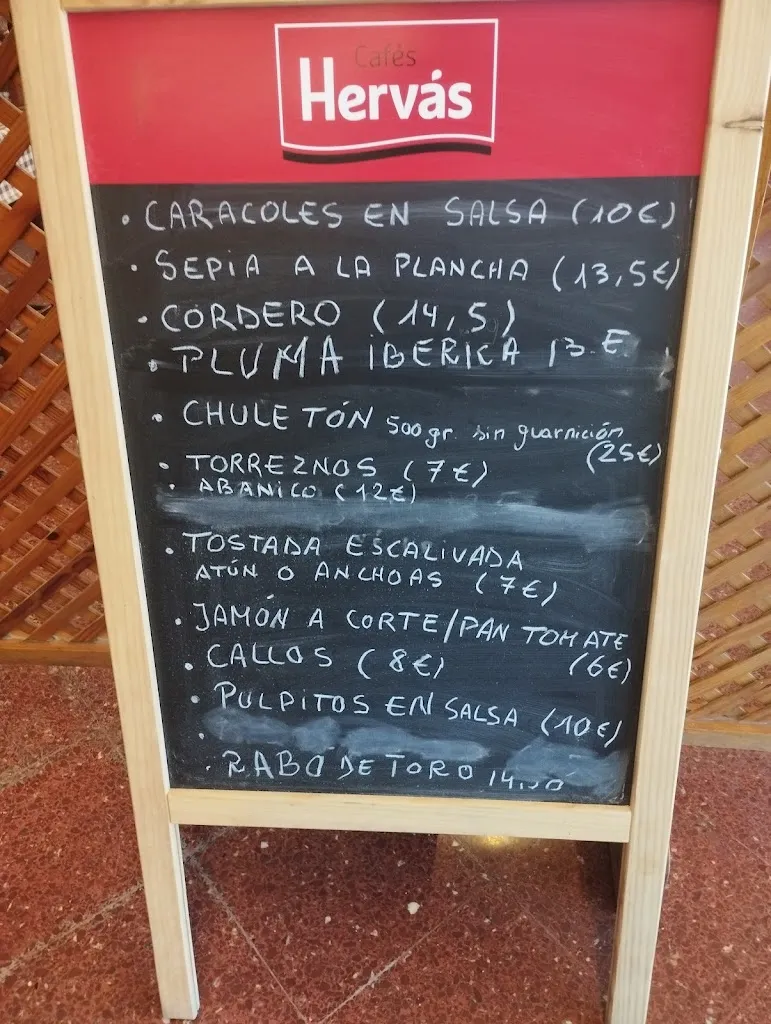 Cafés
Hervás
• CARACOLES EN SALSA (10€)
• SEPIA A LA PLANCHA (13,5€)
• CORDERO (14,5)
• PLUMA IBERICA 13 €
• CHULETÓN 500gr. sin guarnición
(25€)
• TORREZNOS (7€)
• ABANICO (12€)
• TOSTADA ESCALIVADA
ATÚN O ANCHOAS (7€)
• JAMÓN A CORTE/PAN TOMATE
(6€)
• CALLOS (8€)
• PULPITOS EN SALSA (10€)
•
• RABO DE TORO 14,50